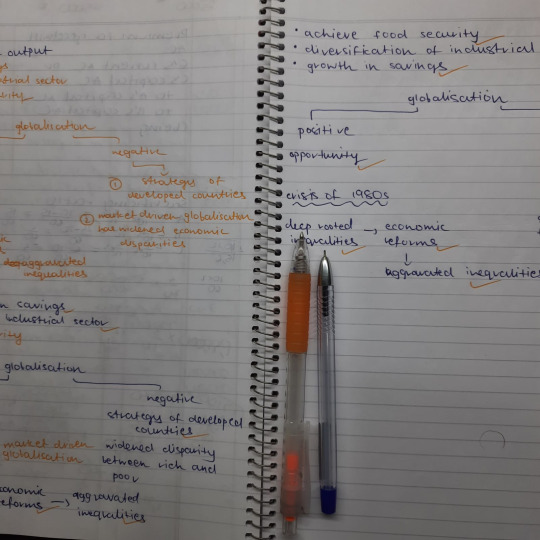 output
sector
globalisation
negative
① strategy of
developed countries
② market driven globalisation
but widened economic
disparities
aggravated
inequalities
savings
industrial sector
globalisation
negative
strategy of developed
countries
market driven
globalisation
widened disparity
between rich and
poor
reforms → aggravated
inequalities
• achieve food security
• diversification of industrial
• growth in savings
globalisation
positive
opportunity
crisis of 1980s
deep rooted → economic
inequalities reforms
↓
aggravated inequalities